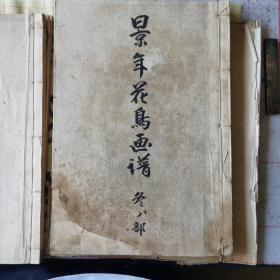 景年花鳥画譜
冬八部